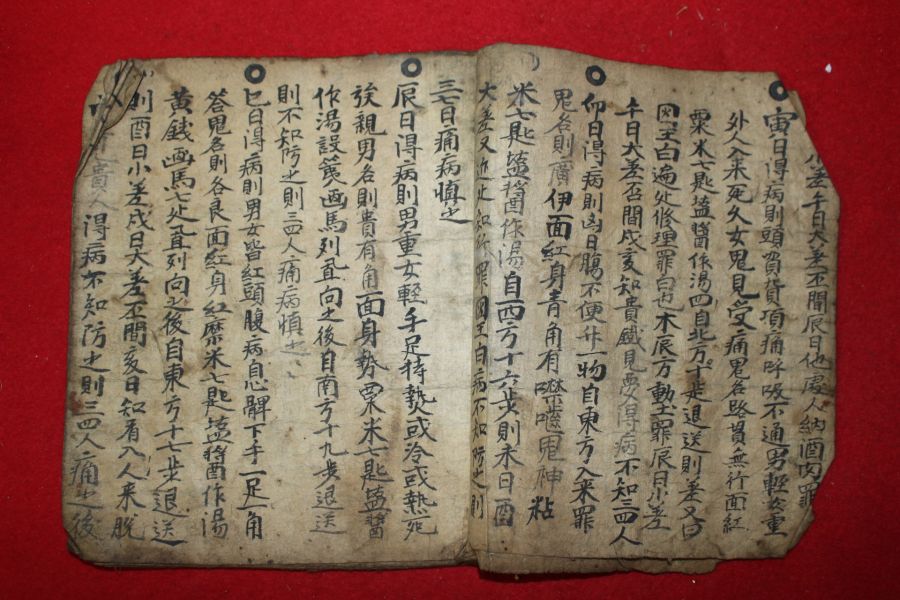 小差午日大差否間辰日他處人納酒肉罪
寅日得病則頭賀貨項痛呼吸不通男輕女重
外人入來死久女鬼見受痛鬼名路貫無行面紅
粟米七匙塩醬作湯四自北方十步退送則差又曰
國王白遍处修理罪曰木辰方動土罪辰日小差
午日大差否間戌亥知貴鐵見要得病不知三四人
卯日得病則凶日腸不便升一物自東方入來罪
鬼名則厲伊面紅身青角有噤鬼神粘
米七匙塩醬作湯自西方十六步則永日酉
大差又近北 罪國王曰病不知防之則
三七日痛病慎之
辰日得病則男重女輕手足待熱或冷或熱死
後親男名則貴有角面身勢粟米七匙塩醬
作湯設饌画馬列置向之後自南方十九步退送
則不知防之則三四人痛病慎之
巳日得病則男女皆紅頭腹病息脾下才一足一角
答鬼名則各良面紅身紅縻米七匙塩醬酉作湯
黄錢画馬七处置列向之後自東方十七步退送
則酉日小差戌日大差否間亥日知看入人来脱
貴人得病不知防之則三四人痛之後